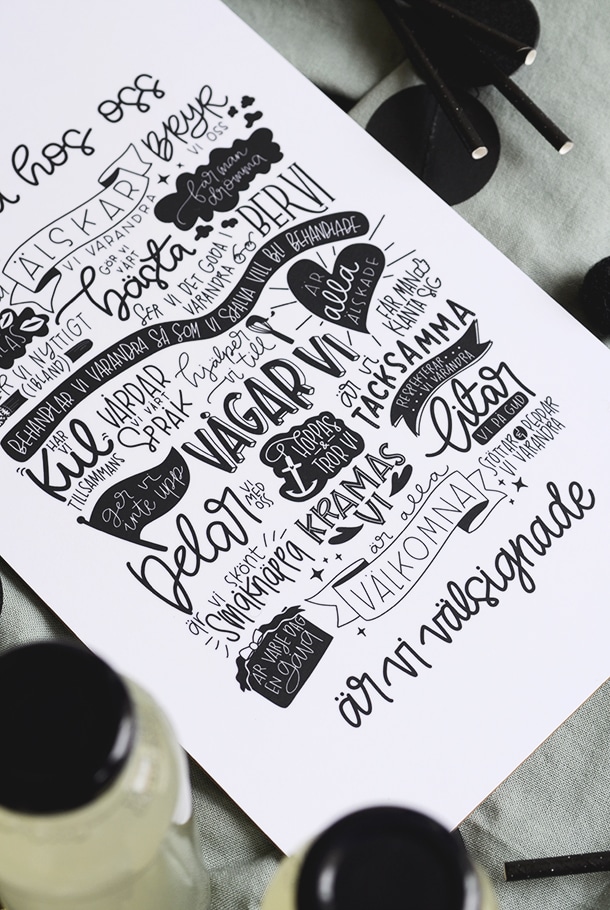 hos oss
ÄLSKAR
VI VARANDRA
BRYR
VI OSS
får man
drömma
GÖR VI
VÅRT
bästa
GER VI
BERÖM
SER VI DET GODA
I VARANDRA
VI NYTTIGT
(IBLAND)
BEHANDLAR VI VARANDRA SÅ SOM VI SJÄLVA VILL BLI BEHANDLADE
ÄR
alla
ÄLSKADE
HAR VI
Kul
TILLSAMMANS
VÅRDAR
VI VÅRT
SPRÅK
hjälper
vi till
VÅGAR VI
är vi
TACKSAMMA
FÅR MAN
KLANTA SIG
RESPEKTERAR
VI VARANDRA
litar
VI PÅ GUD
STÖTTAR & PEPPAR
VI VARANDRA
ger vi
inte upp
HOPPAS
&
TROR VI
Delar
VI
MED
OSS
KRAMAS
VI
är vi skönt
Småknäppa
är alla
VÄLKOMNA
ÄR VARJE DAG
EN gåva
är vi välsignade